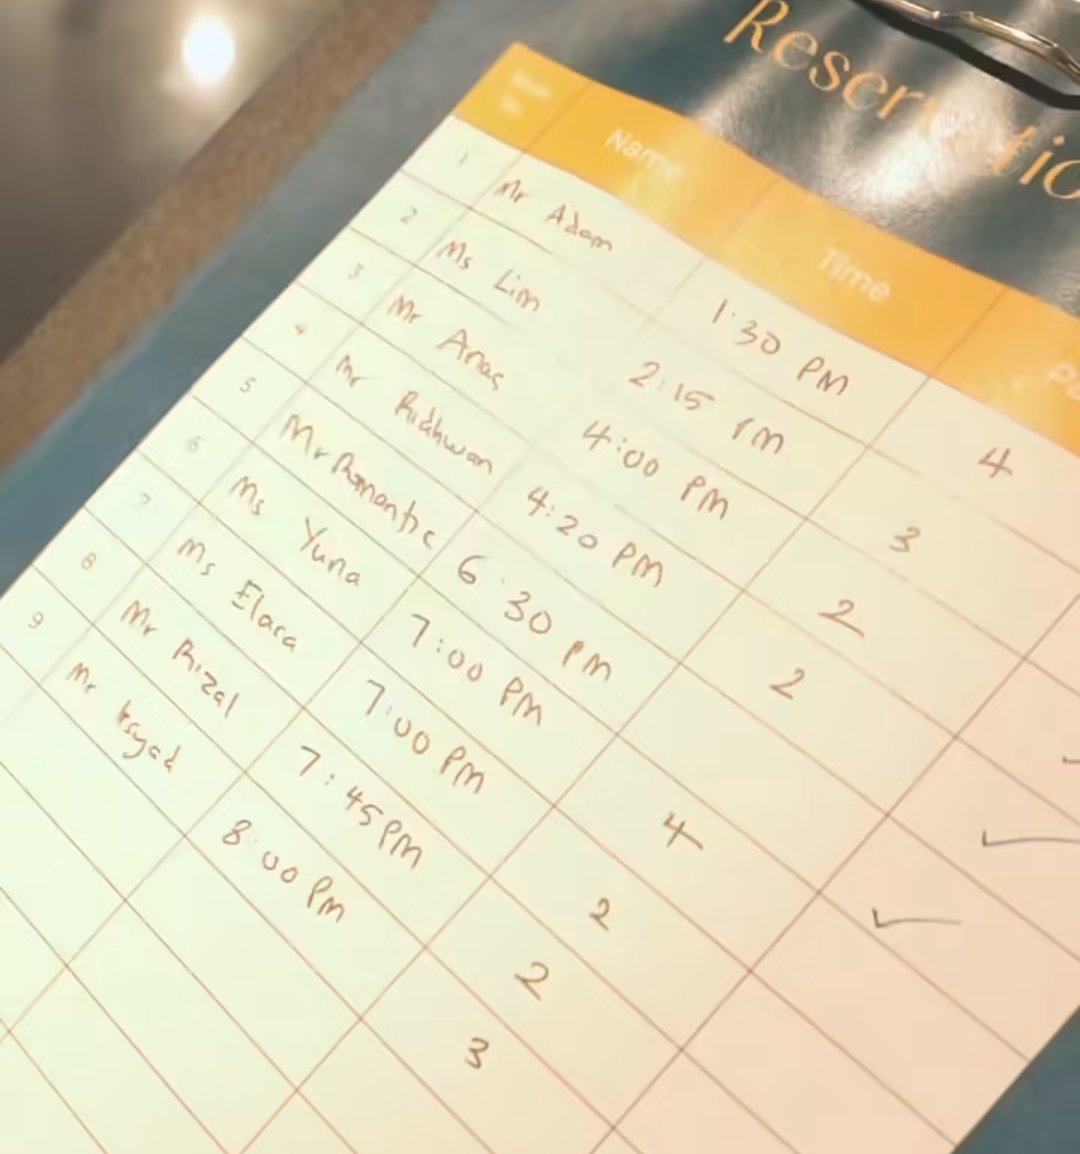 Reservatio
Name Time
1 Mr Adam 1:30 PM 4
2 Ms Lim 2:15 PM 3
3 Mr Anas 4:00 PM 2
4 Mr Ridhwan 4:20 PM 2
5 Mr Romantic 6:30 PM
6 Ms Yuna 7:00 PM 4
7 Ms Elara 7:00 PM 2
8 Mr Rizal 7:45 PM 2
9 Mr Irsyad 8:00 PM 3